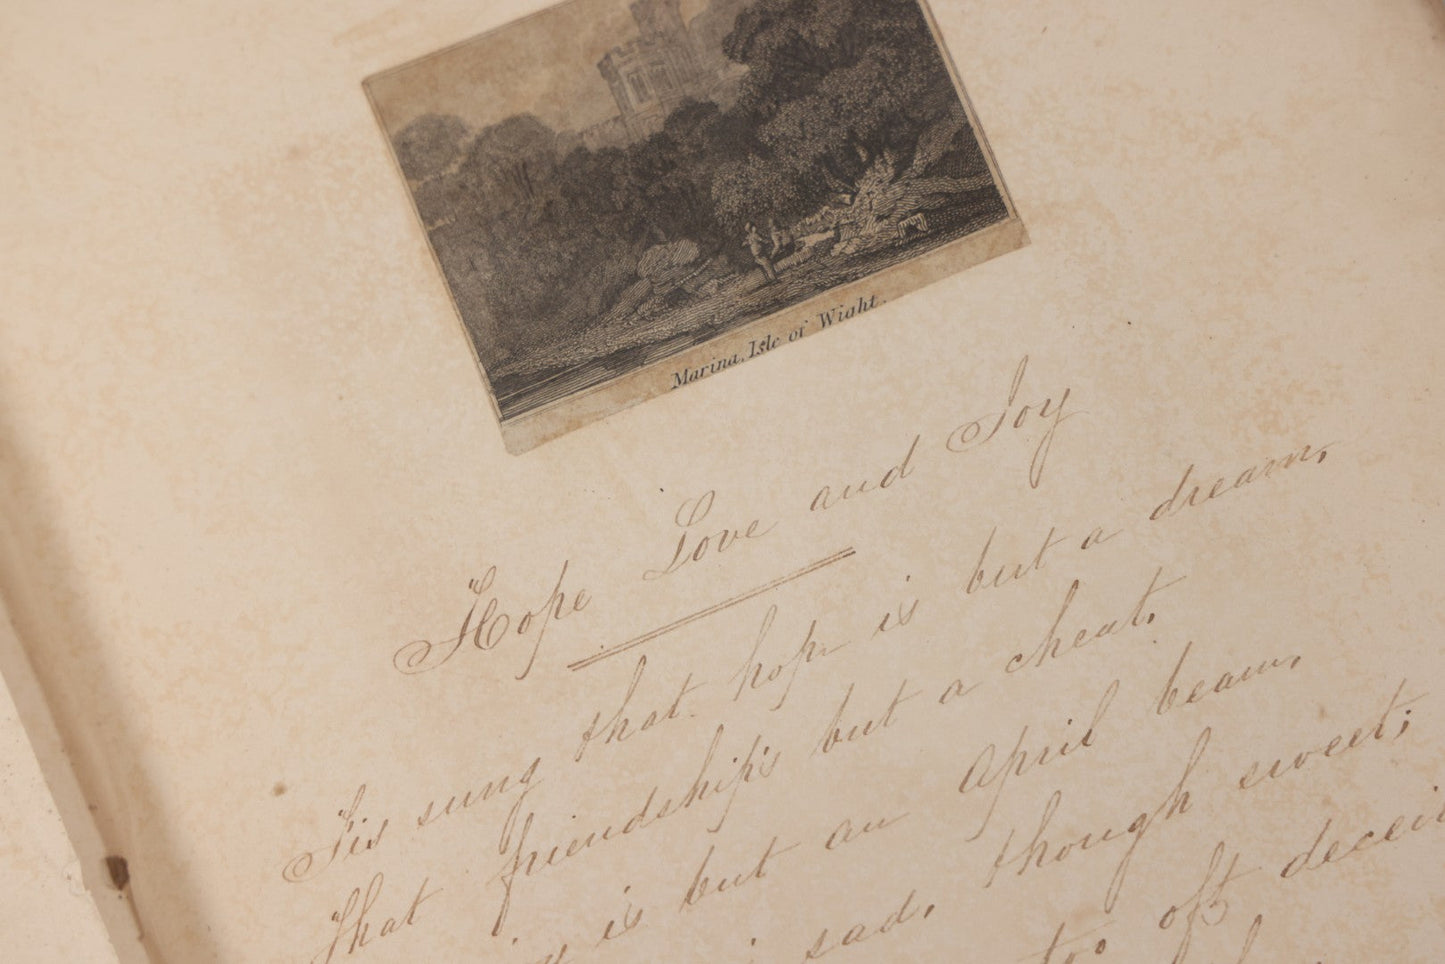 Marina, Isle of Wight.
Hope Love and Joy
Tis sung that hope is but a dream,
That friendship's but a cheat.
is but an April beam,
sad, though sweet;
too oft